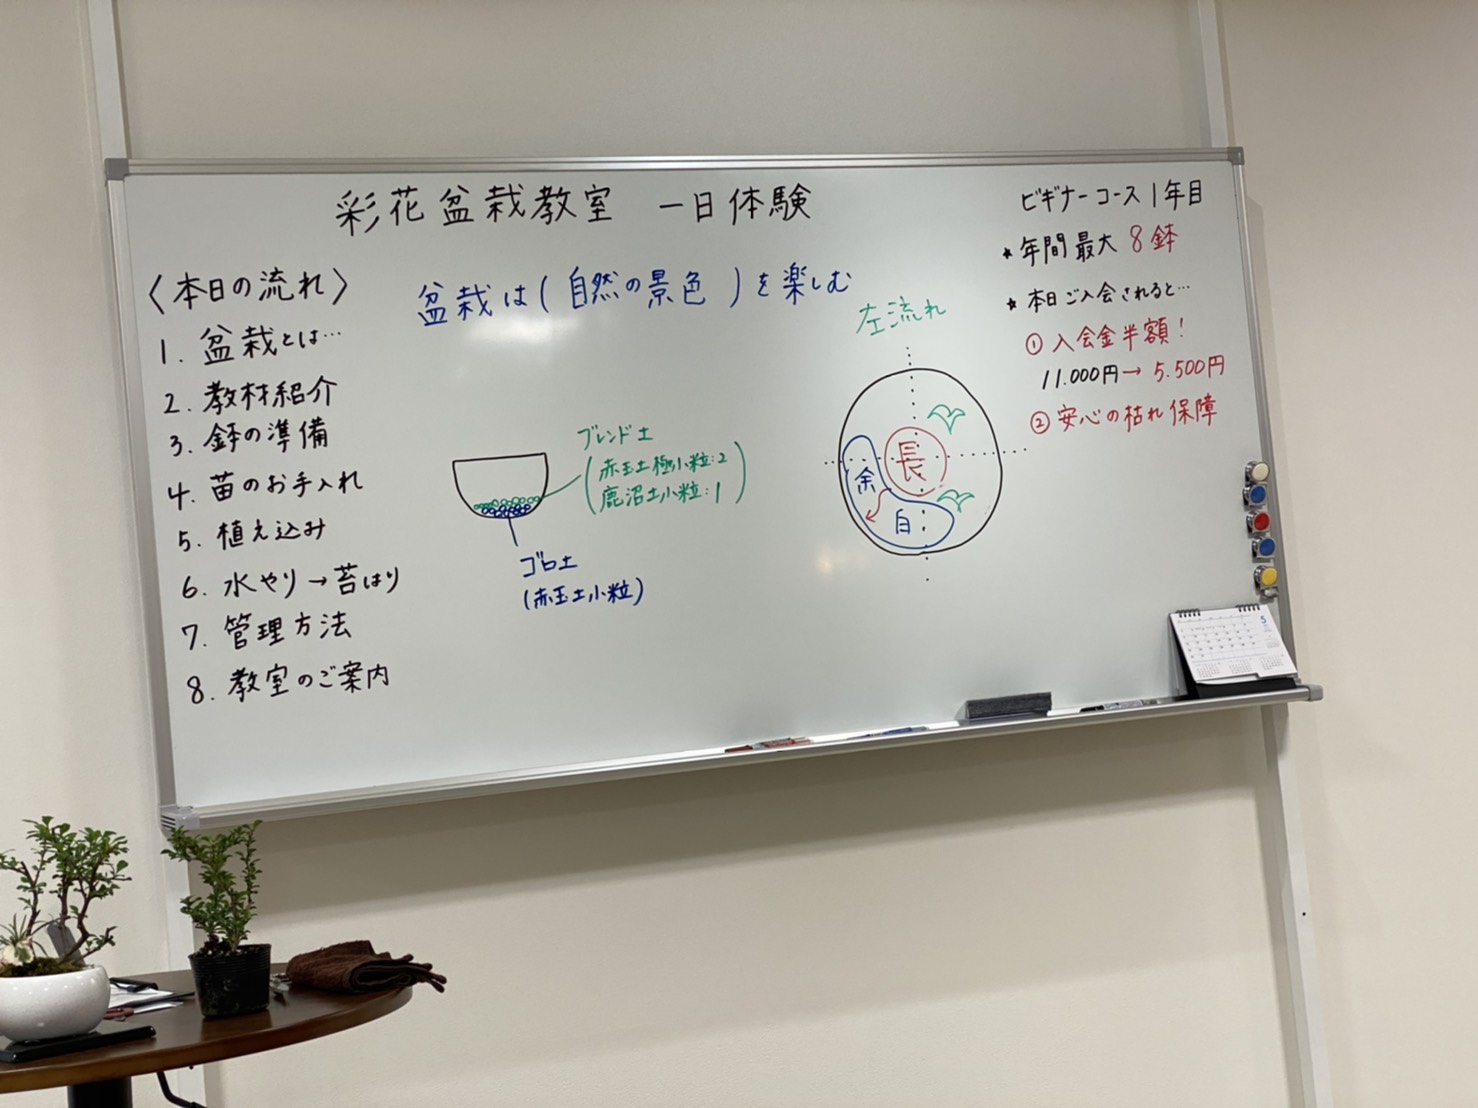 彩花盆栽教室 一日体験
〈本日の流れ〉
1. 盆栽とは…
2. 教材紹介
3. 鉢の準備
4. 苗のお手入れ
5. 植え込み
6. 水やり→苔はり
7. 管理方法
8. 教室のご案内
盆栽は(自然の景色)を楽しむ
ブレンド土
(赤玉土極小粒:2
鹿沼土小粒:1)
ゴロ土
(赤玉土小粒)
左流れ
長
余
白
ビギナーコース1年目
★年間最大 8鉢
★本日ご入会されると…
① 入会金半額!
11.000円→5.500円
② 安心の枯れ保障
5